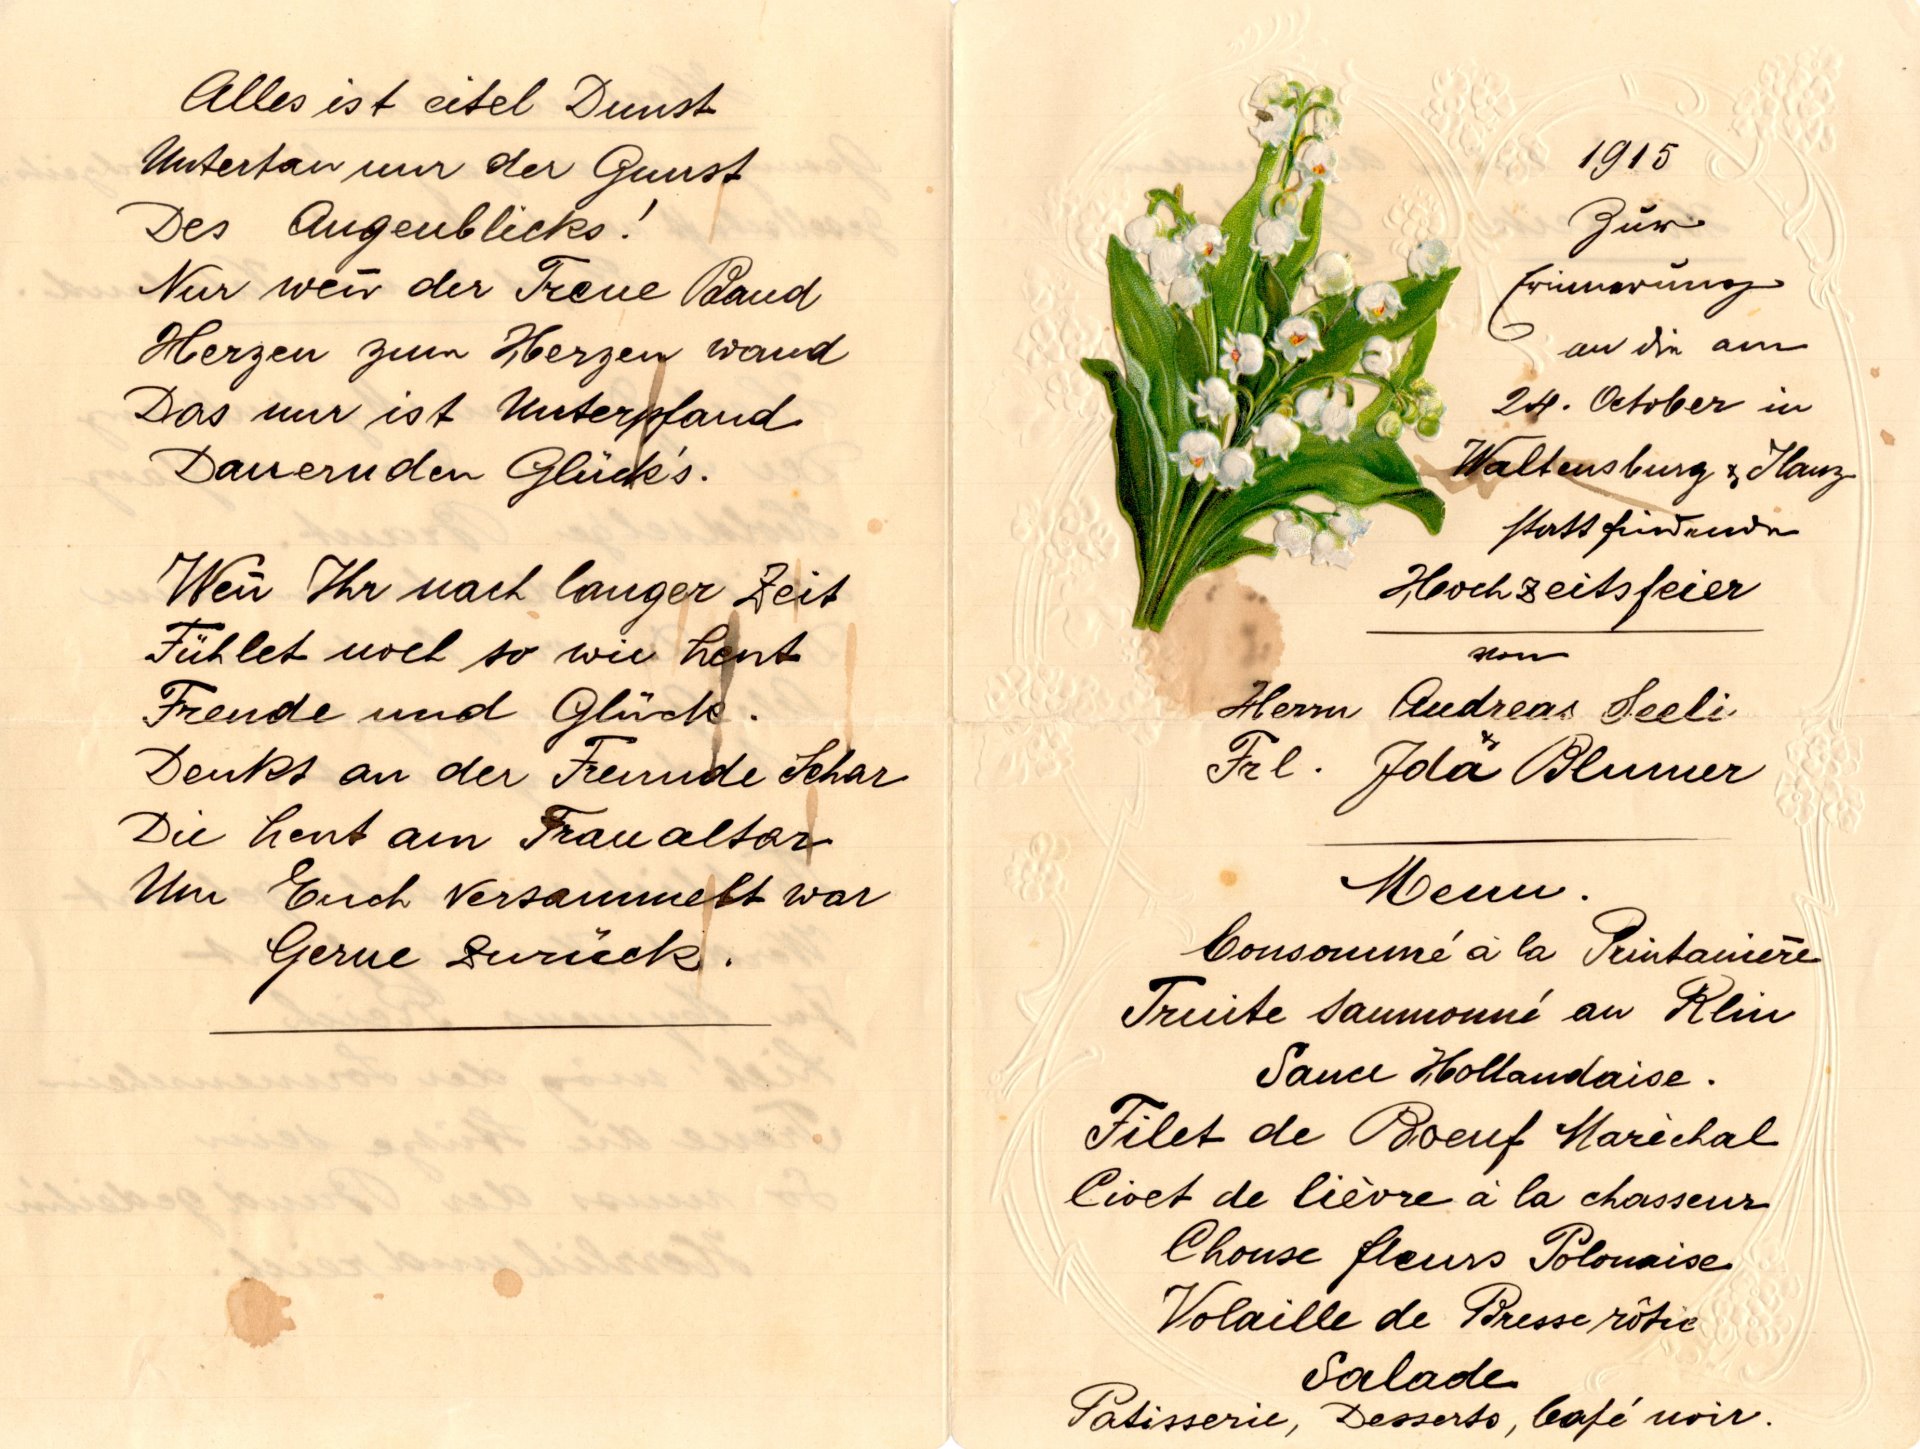 Alles ist eitel Dunst
Untertan nur der Gunst
Des Augenblicks!
Nur wen̄ der Treue Band
Herzen zum Herzen wand
Das nur ist Unterpfand
Dauernden Glück's.
Wen̄ Ihr nach langer Zeit
Fühlet noch so wie heut
Freude und Glück.
Denkt an der Freunde Schar
Die heut am Traualtar
Um Euch versammelt war
Gerne zurück.
1915
Zur
Erinnerung
an die am
24. October in
Waltensburg & Ilanz
stattfindende
Hochzeitsfeier
von
Herrn Andreas Seeli
&
Frl. Ida Blumer
Menu.
Consommé à la Printanière
Truite saumonné au Rhin
Sauce Hollandaise.
Filet de Boeuf Maréchal
Civet de lièvre à la chasseur
Chouse fleurs Polonaise
Volaille de Bresse rôtie
Salade
Patisserie, Desserts, Café noir.